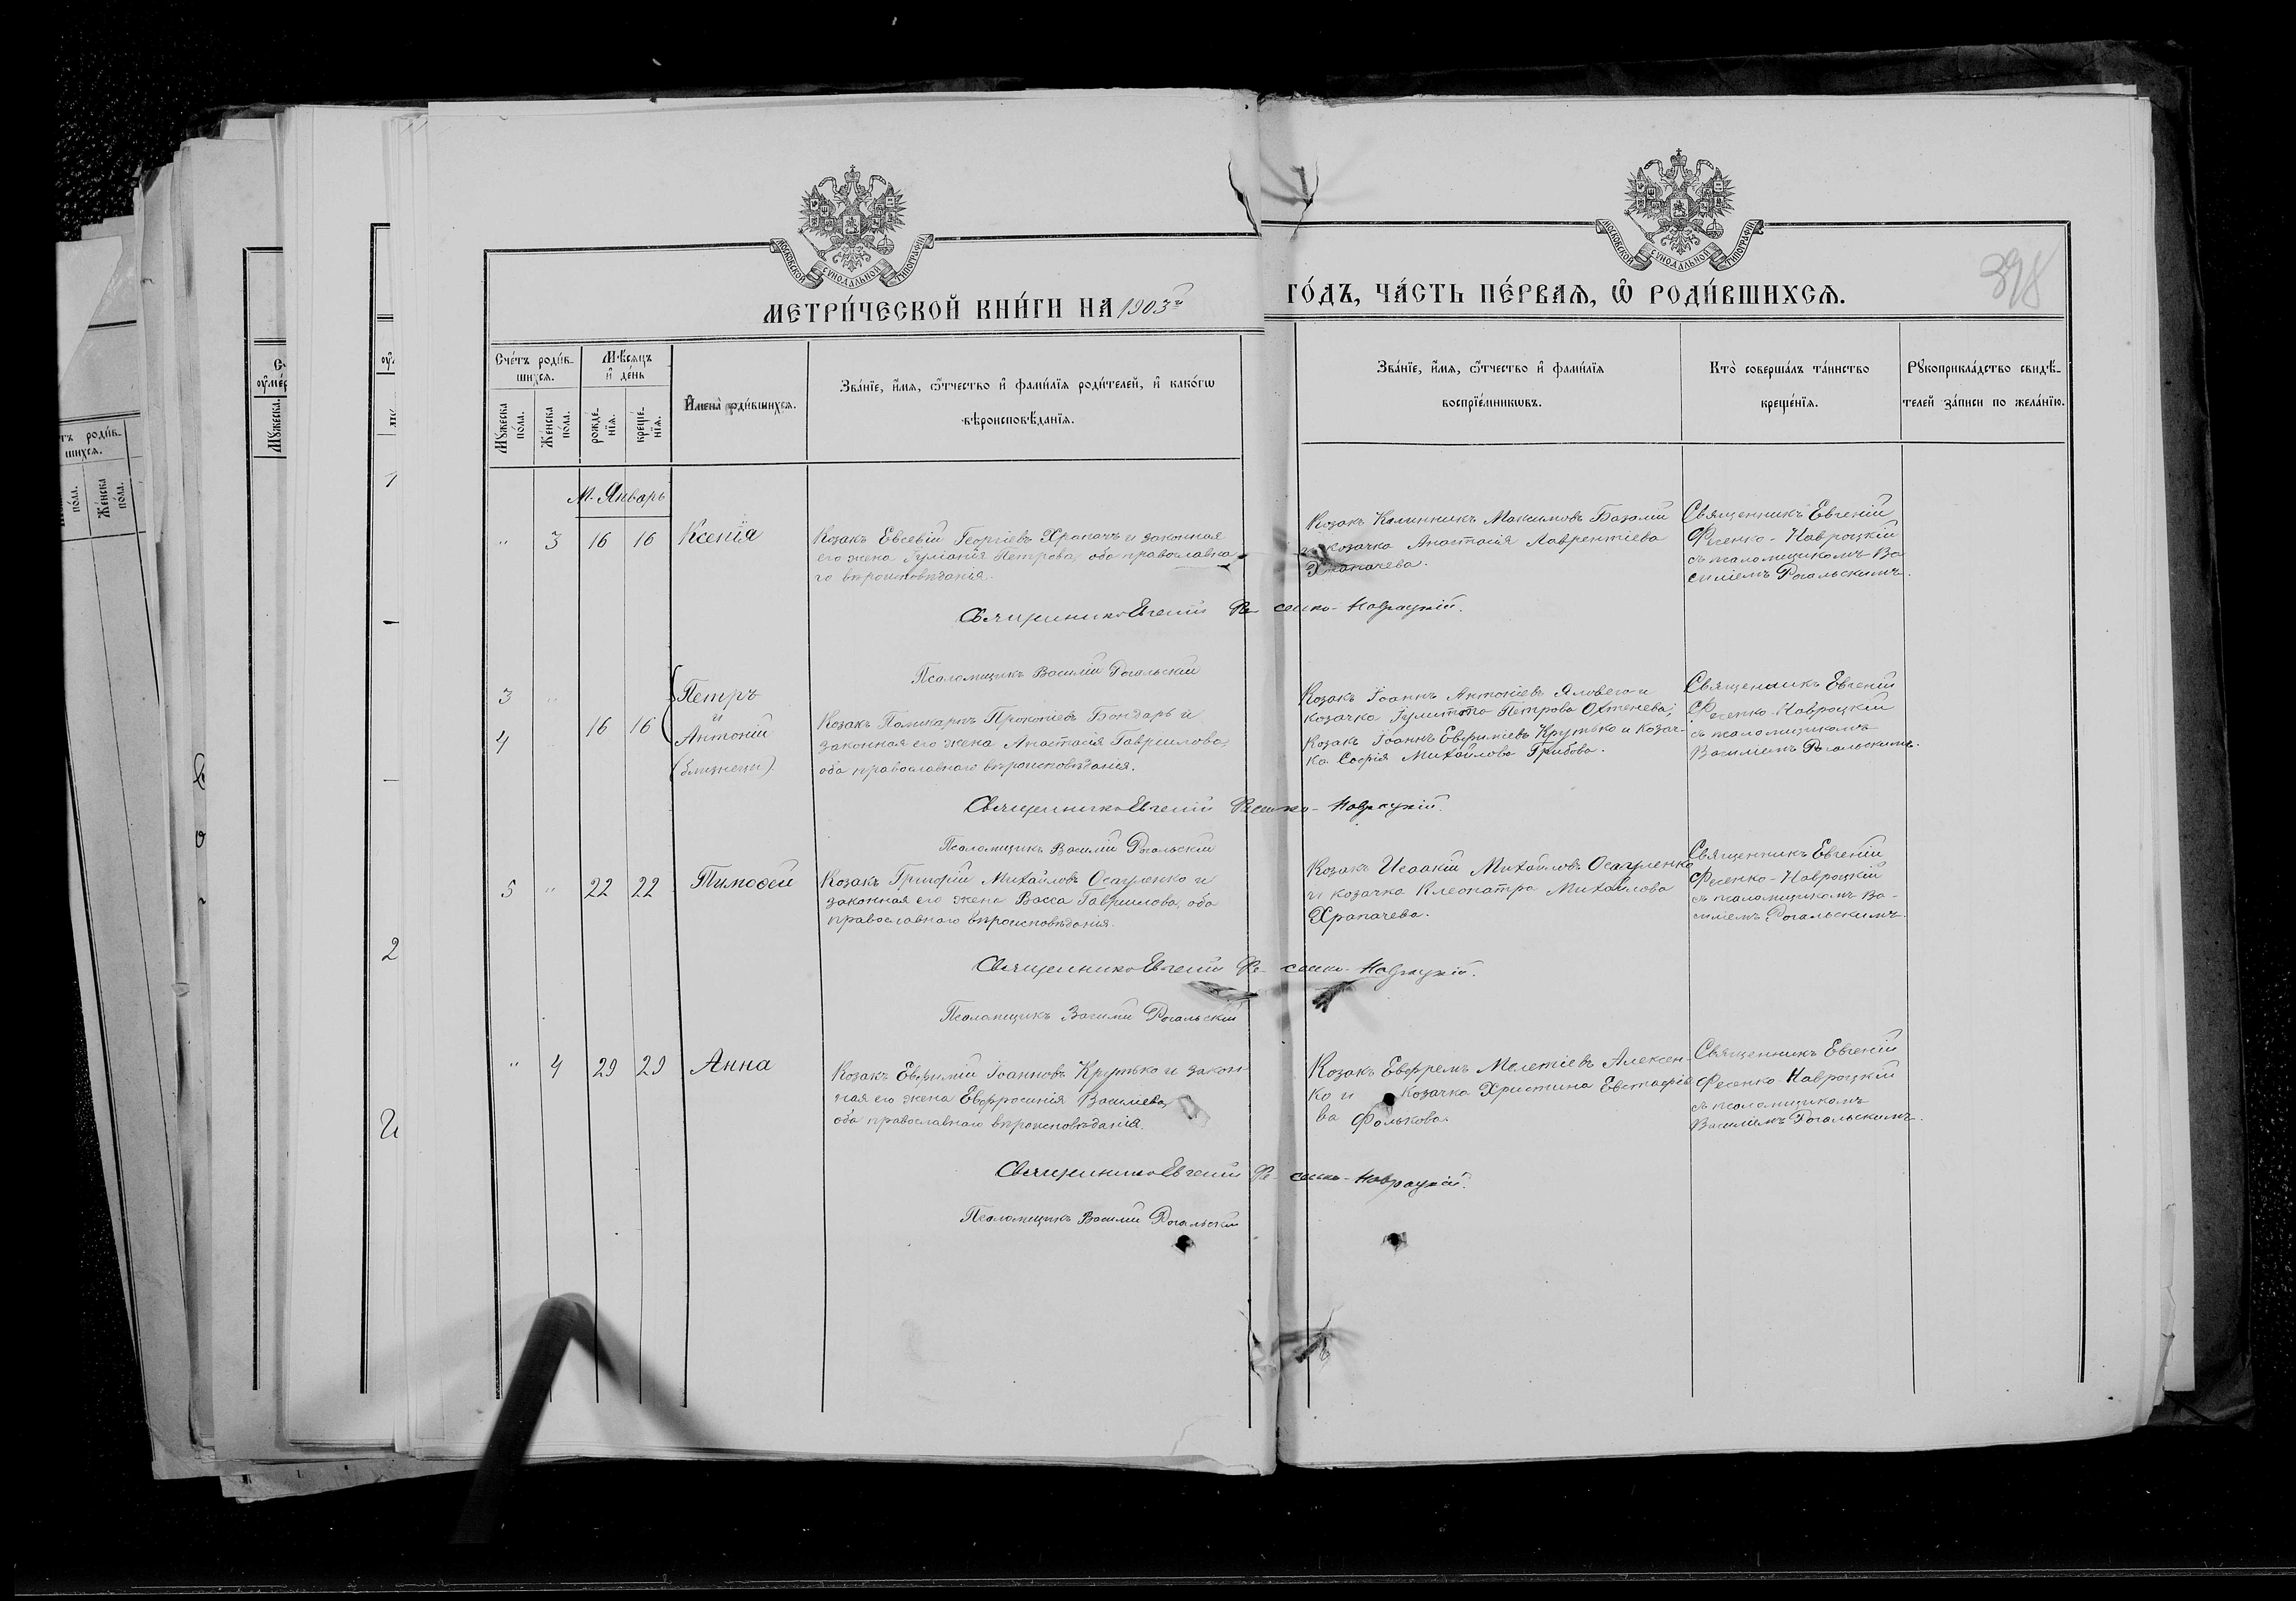 МОСКОВСКОЙ СУНОДАЛЬНОЙ ТИПОГРАФІИ
МОСКОВСКОЙ СУНОДАЛЬНОЙ ТИПОГРАФІИ
398
МЕТРИ́ЧЕСКОЙ КНИ́ГИ НА 1903й ГО́ДЪ, ЧА́СТЬ ПЕ́РВАѦ, Ѡ РОДИ́ВШИХСѦ.
Сче́тъ роди́в-
шихсѧ.
Мꙋ́жеска по́ла.
Же́нска по́ла.
Мѣ́сѧцъ
и҆ де́нь
рожде́-нїѧ.
креще́-нїѧ.
И҆мена̀ роди́вшихсѧ.
Зва́нїе, и҆́мѧ, ѻ҆́тчество и҆ фами́лїѧ роди́телей, и҆ како́гѡ
вѣроисповѣ́данїѧ.
Зва́нїе, и҆́мѧ, ѻ҆́тчество и҆ фами́лїѧ
воспрїе́мникѡвъ.
Кто̀ соверша́лъ та́инство
креще́нїѧ.
Рꙋкоприкла́дство свидѣ́-
телей за́писи по жела́нїю.
М. Январь
" 3 16 16 Ксенія
Козакъ Евсевій Георгіевъ Храпачъ и законная
его жена Іуліанія Петрова, оба православна
го вѣроисповѣданія.
Козакъ Калинникъ Максимовъ Базалій
и козачка Анастасія Лаврентіева
Храпачева.
Священникъ Евгеній
Фесенко-Навроцкій
съ псаломщикомъ Ва
силіемъ Рогальскимъ.
Священникъ Евгеній Фесенко-Навроцкій.
Псаломщикъ Василій Рогальскій
3 "
4
16 16
Петръ
и
Антоній
(близнецы)
Козакъ Поликарпъ Прокопіевъ Бондарь и
законная его жена Анастасія Гавриилова,
оба православнаго вѣроисповѣданія.
Козакъ Іоаннъ Антоніевъ Яловего и
козачка Іулитта Петрова Охтенева;
Козакъ Іоаннъ Евфиміевъ Крутько и козач-
ка Софія Михайлова Грибова.
Священникъ Евгеній
Фесенко-Навроцкій
съ псаломщикомъ
Василіемъ Рогальскимъ.
Священникъ Евгеній Фесенко-Навроцкій.
Псаломщикъ Василій Рогальскій
5 " 22 22 Тимоѳей
Козакъ Григорій Михайловъ Осауленко и
законная его жена Васса Гавриилова, оба
православнаго вѣроисповѣданія.
Козакъ Исаакій Михайловъ Осауленко
и козачка Клеопатра Михайлова
Храпачева.
Священникъ Евгеній
Фесенко-Навроцкій
съ псаломщикомъ Ва-
силіемъ Рогальскимъ.
Священникъ Евгеній Фесенко-Навроцкій.
Псаломщикъ Василій Рогальскій
" 4 29 29 Анна
Козакъ Евфимій Іоанновъ Крутько и закон
ная его жена Евфросинія Василіева,
оба православнаго вѣроисповѣданія.
Козакъ Ефремъ Мелетіевъ Алексен-
ко и козачка Христина Евстафіе
ва Фолькова.
Священникъ Евгеній
Фесенко-Навроцкій
съ псаломщикомъ
Василіемъ Рогальскимъ.
Священникъ Евгеній Фесенко-Навроцкій.
Псаломщикъ Василій Рогальскій